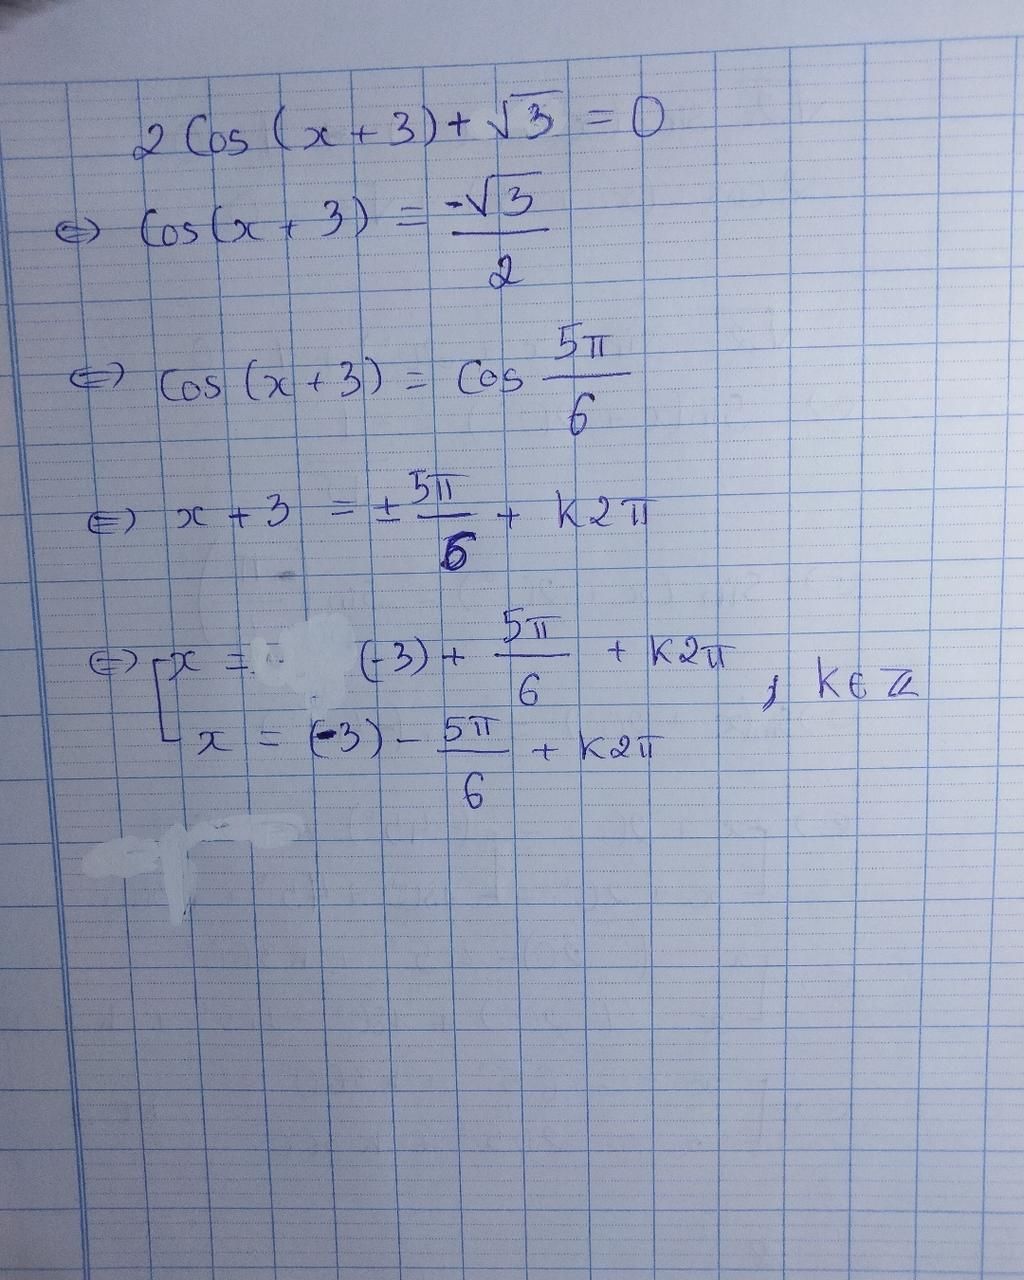 2 Cos (x + 3) + √3 = 0
⇔ Cos(x + 3) = -√3/2
⇔ Cos (x + 3) = Cos 5π/6
⇔ x + 3 = ± 5π/6 + K2π
⇔ [ x = (-3) + 5π/6 + K2π
x = (-3) - 5π/6 + K2π , K ∈ ℤ